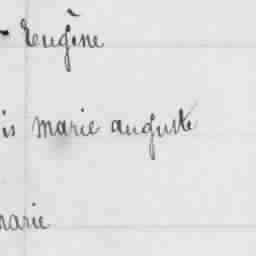 Eugène
is marie auguste
marie